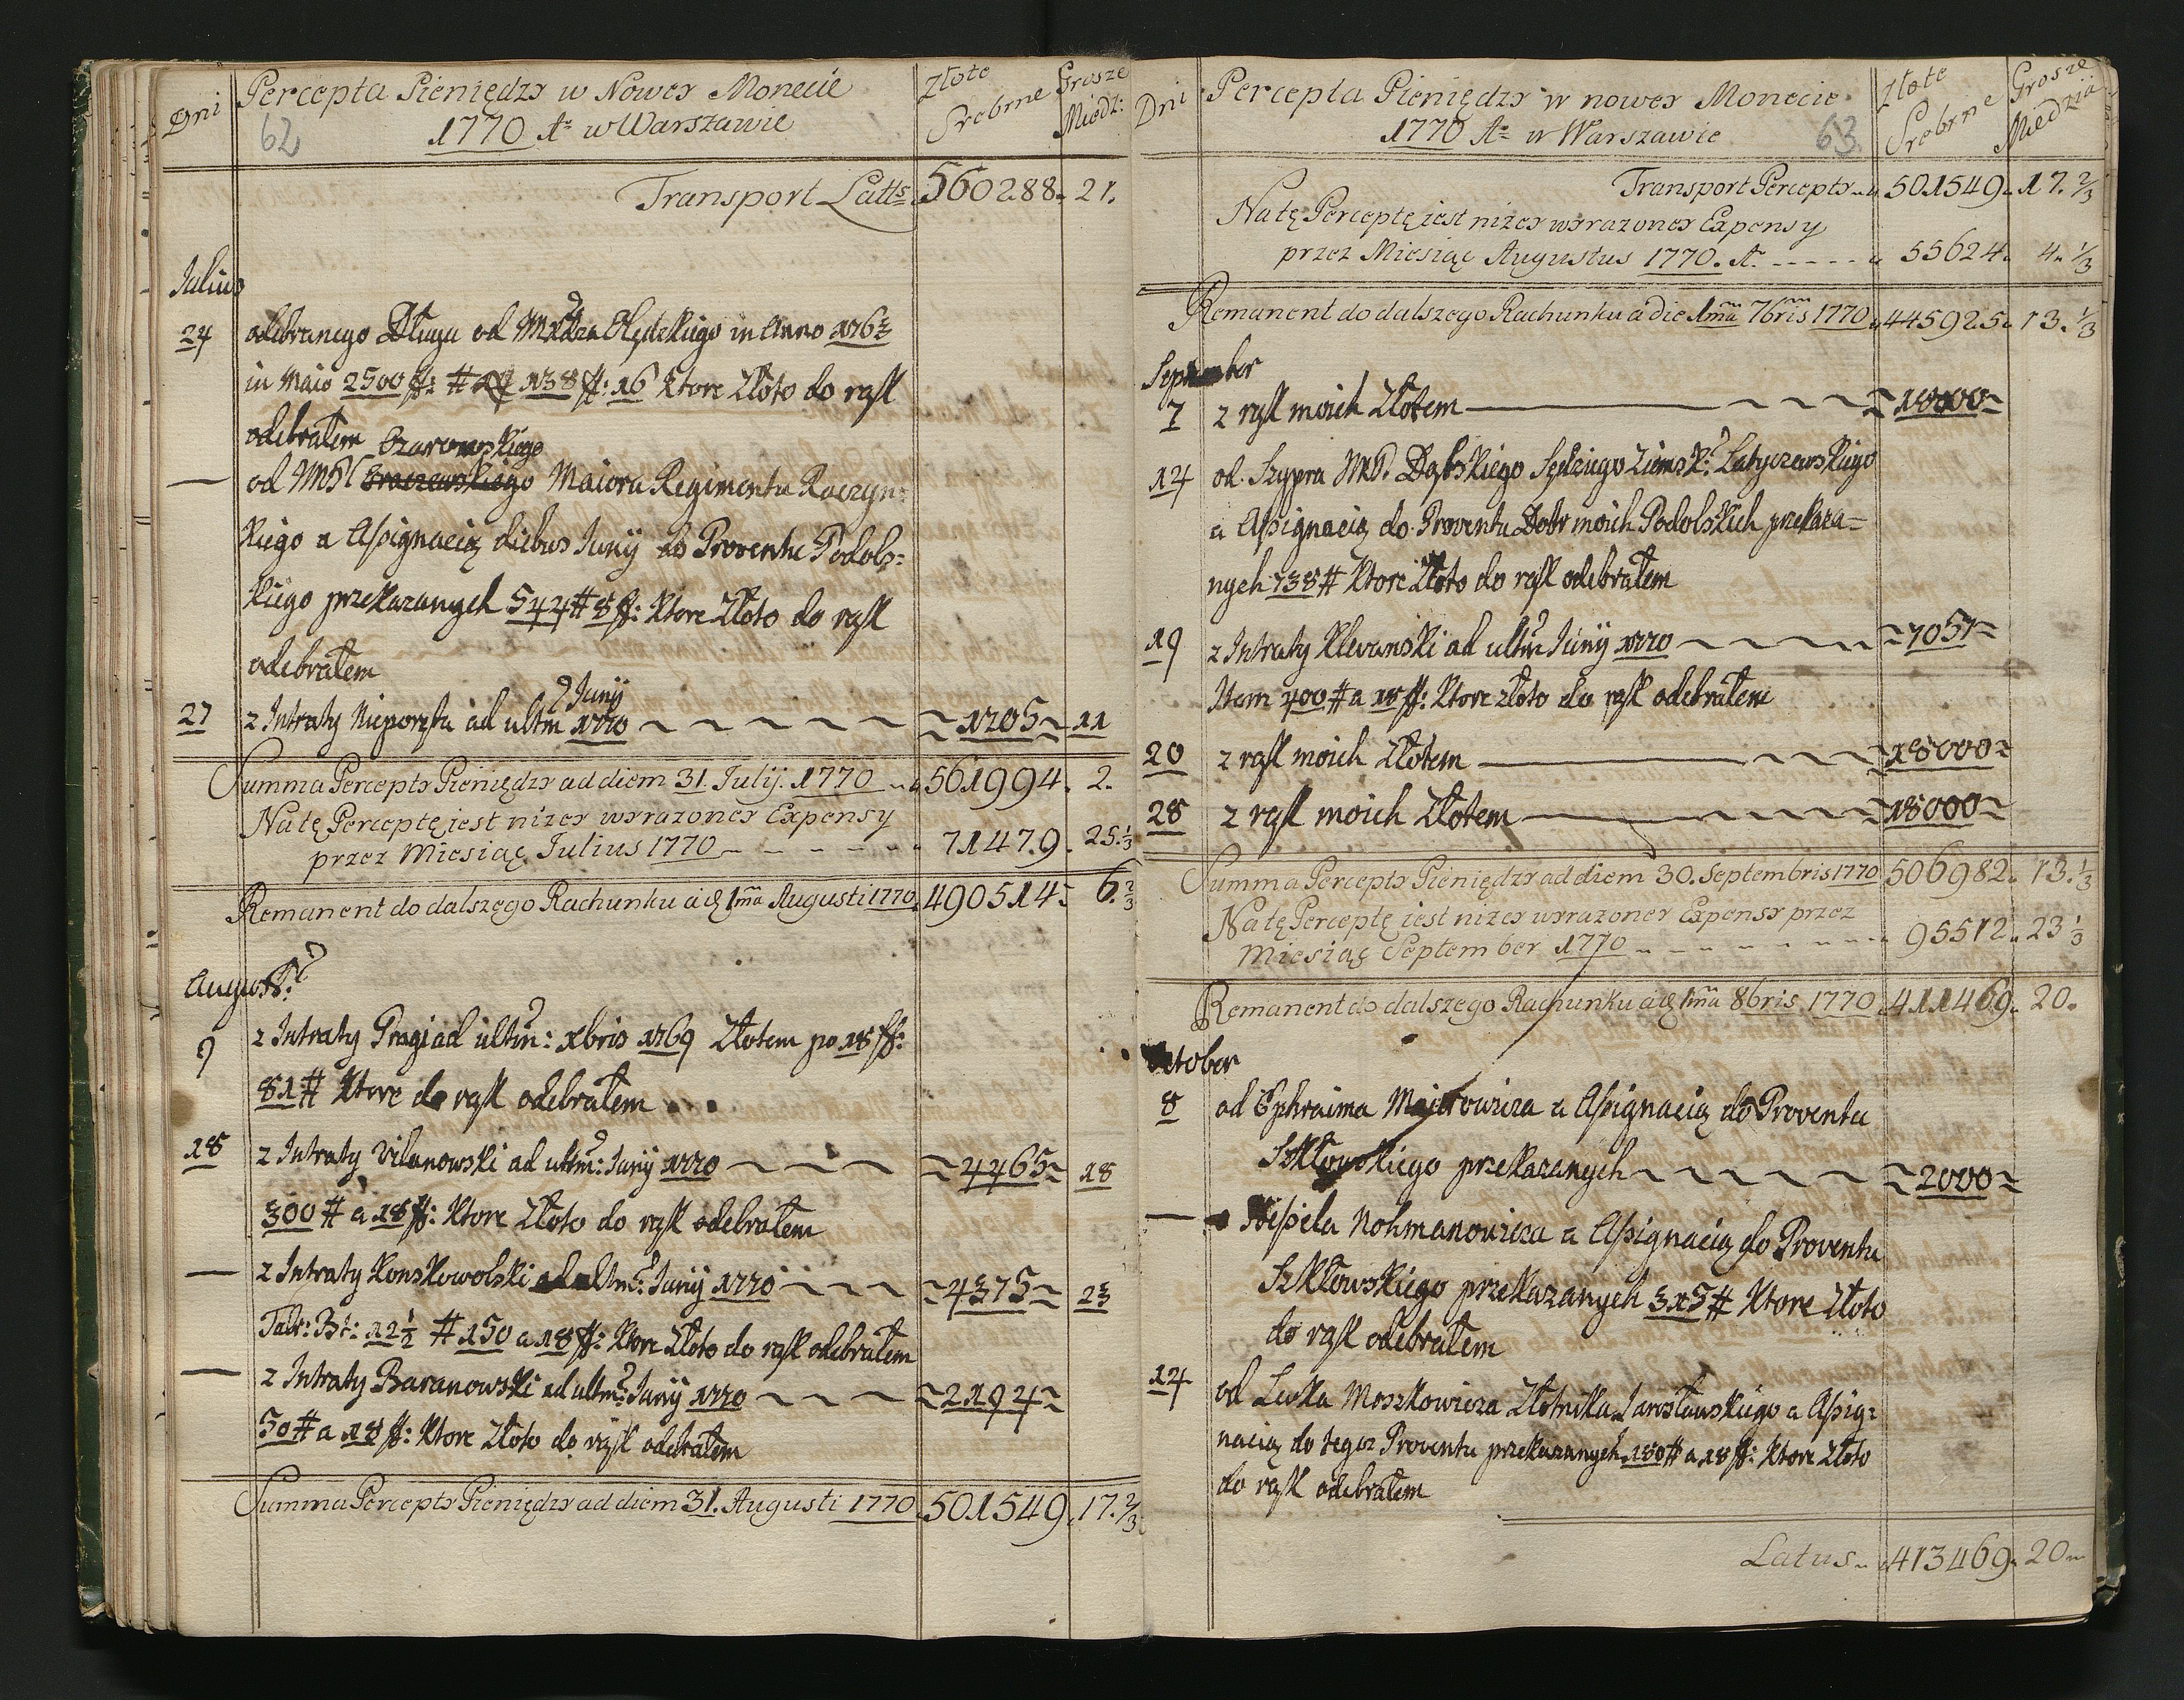 Dni
Percepta Pieniędzy w Nowey Monecie
1770 Ao w Warszawie
62
Złote Srebrne
Grosze Miedz:
Transport Latts 560288. 21.
Julius
24 odebranego Długu od in Anno
in Maio 2500 ff: # 138 ff: 16 ktore Złoto do rąk
odebrałem
Czarowskiego
— od Maiora Regimentu Raczyn:
kiego a Assignacią diebus Juny do Proventu Podols:
kiego przekazanych 544 # 8 ff: ktore Złoto do rąk
odebrałem
Juny
27 z Intraty Nieporętu ad ultm 1770 ~ ~ ~ ~ ~ 1705 ~ 11
Summa Percepty Pieniędzy ad diem 31. Julij. 1770 561994. 2.
Na tę Perceptę jest niżey wyrazoney Expensy
przez Miesiąc Julius 1770 - - - - - - 71479. 25. 1/3
Remanent do dalszego Rachunku a d 1ma Augusti 1770. 490514. 6. 2/3
August:
9 z Intraty Pragi ad ultm: xbris 1769 Złotem po 18 ff:
81 # ktore do rąk odebrałem
18 z Intraty Vilanowski ad ultm: Juny 1770 ~ ~ ~ ~ 4465 ~ 18
300 # a 18 ff: ktore Złoto do rąk odebrałem
— z Intraty Konskowolski ad ultm: Juny 1770 ~ ~ ~ ~ 4375 ~ 23
Talr: Bt: 12 1/2 # 150 a 18 ff: ktore Złoto do rąk odebrałem
— z Intraty Baranowski ad ultm: Juny 1770 ~ ~ ~ ~ 2194 ~
50 # a 18 ff: ktore Złoto do rąk odebrałem
Summa Percepty Pieniędzy ad diem 31. Augusti 1770. 501549. 17. 2/3
Dni
Percepta Pieniędzy w nowey Monecie
1770 Ao w Warszawie
63.
Złote Srebrne
Grosze Miedzia
Transport Percepty 501549. 17. 2/3
Na tę Perceptę jest niżey wyrazoney Expensy
przez Miesiąc Augustus 1770. Ao - - - - - 55624. 4. 1/3
Remanent do dalszego Rachunku a die 1ma 7bris 1770 445925. 13. 1/3
September
7 z rąk moich Złotem ~ ~ ~ 18000 ~
14 od Szypra Dąbskiego Sędziego Ziemsk: Latyczewskiego
a Assignacią do Proventu Dobr moich Podolskich przekaza=
nych 738 # ktore Złoto do rąk odebrałem
19 z Intraty Klevanski ad ultm Juny 1770 ~ ~ ~ ~ 7057 ~
Item 400 # a 18 ff: ktore złoto do rąk odebrałem
20 z rąk moich Złotem ~ ~ ~ 18000 ~
28 z rąk moich Złotem ~ ~ ~ 18000 ~
Summa Percepty Pieniędzy ad diem 30. Septembris 1770 506982. 13. 1/3
Na tę Perceptę iest niżey wyrazoney Expensy przez
Miesiąc September 1770 - - - - - - 95512. 23 1/3
Remanent do dalszego Rachunku a d 1ma 8bris 1770 411469. 20.
October
8 od Ephraima Majerowicza a Assignacią do Proventu
Szkłowskiego przekazanych ~ ~ ~ ~ ~ 2000 ~
— Nohmanowicza a Assignacią do Proventu
Szkłowskiego przekazanych 315 # ktore Złoto
do rąk odebrałem
14 od Leyka Moszkowicza Złotnika Jarosławskiego a Assig:
nacią do tegoz Proventu przekazanych 180 # a 18 ff: ktore Złoto
do rąk odebrałem
Latus 413469. 20